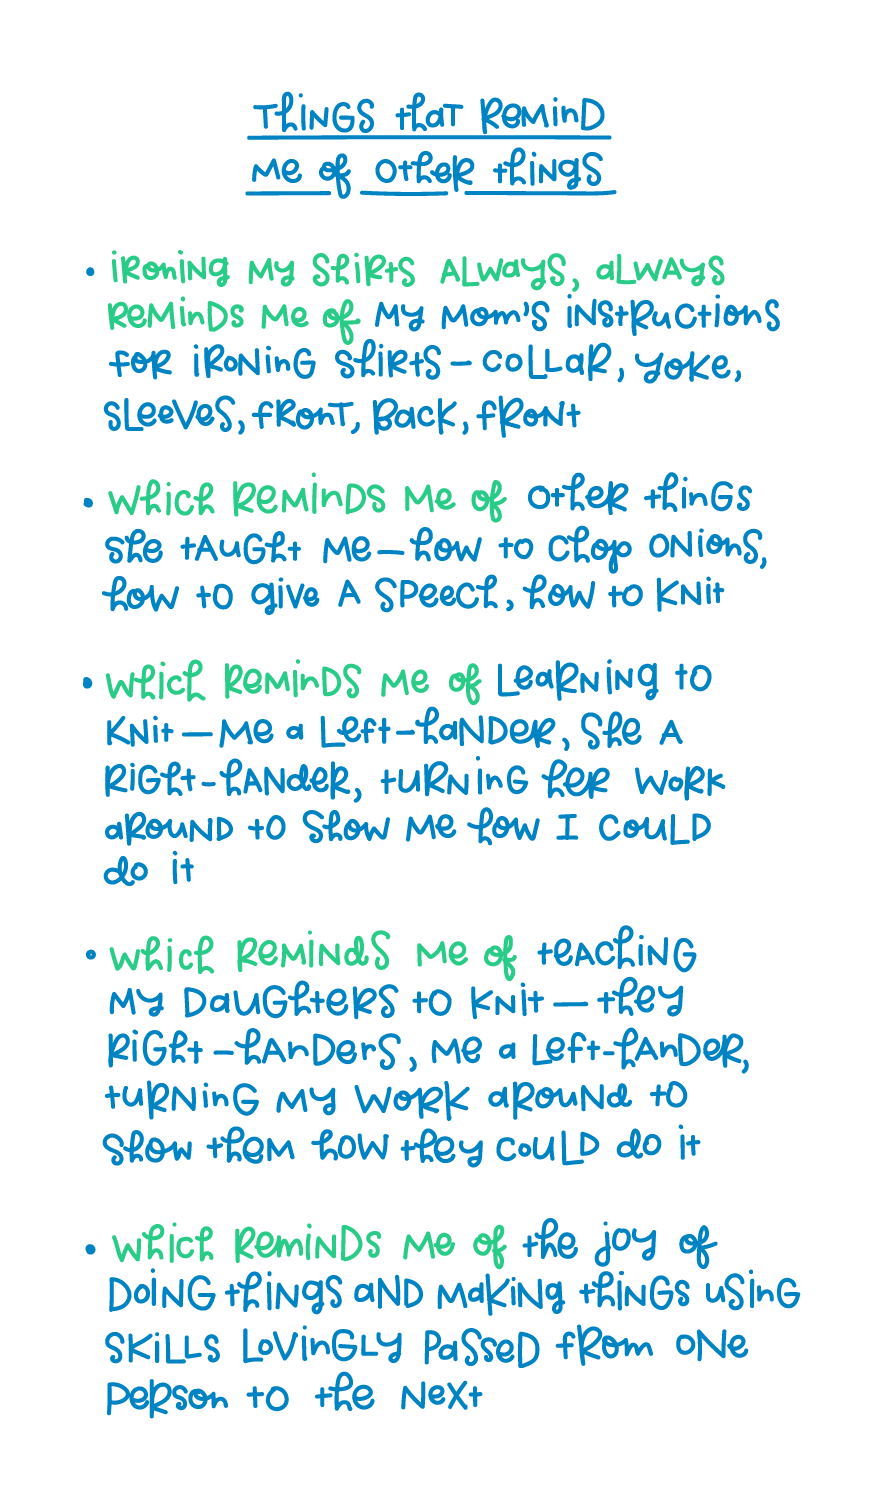 Things that Remind
Me of Other things
• ironing my shirts always, always
reminds me of my mom's instructions
for ironing shirts – collar, yoke,
sleeves, front, back, front
• which reminds me of other things
she taught me – how to chop onions,
how to give a speech, how to knit
• which reminds me of learning to
knit – me a left-hander, she a
right-hander, turning her work
around to show me how I could
do it
• which reminds me of teaching
my daughters to knit – they
right-handers, me a left-hander,
turning my work around to
show them how they could do it
• which reminds me of the joy of
doing things and making things using
skills lovingly passed from one
person to the next